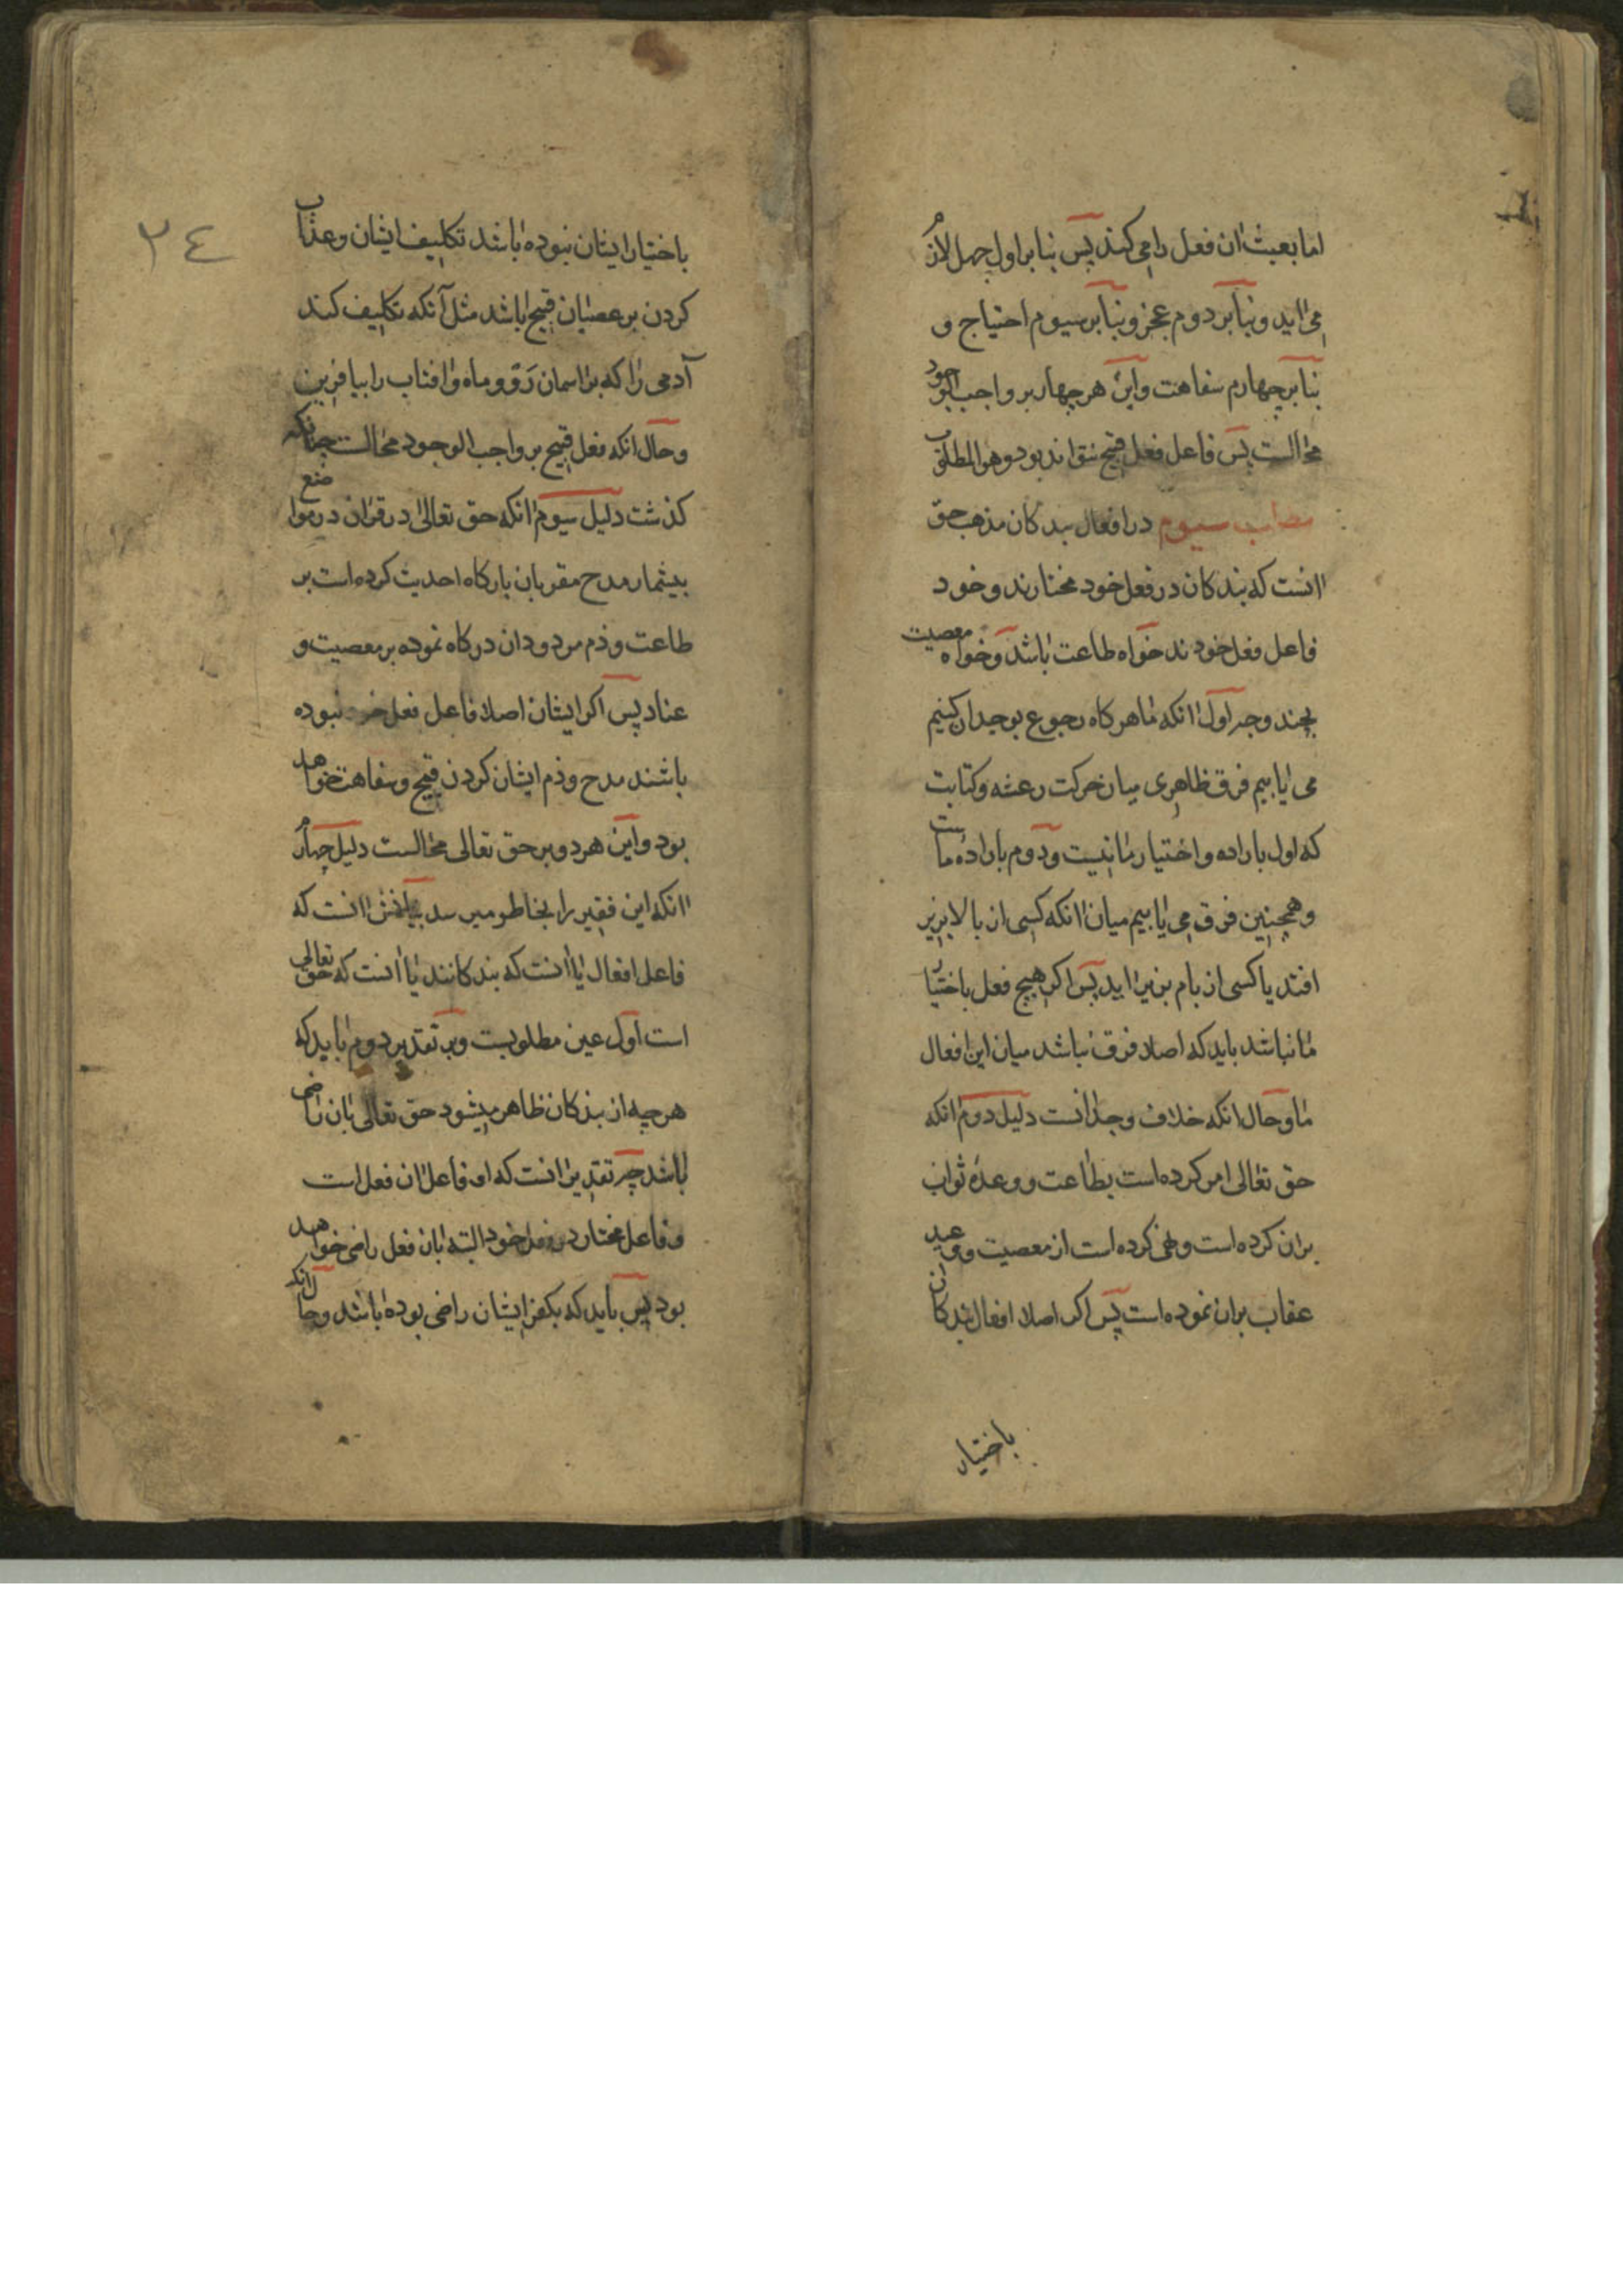 اما بعبث ان فعل را می کند پس بنابر اول جهل لازم
می اید و بنابر دوم عجز و بنابر سیوم احتیاج و
بنابر چهارم سفاهت و این هر چهار بر واجب الوجود
محالست پس فاعل فعل قبیح نتواند بود و هو المطلوب
مطلب سیوم در افعال بندکان مذهب حق
انست که بندکان در فعل خود مختارند و خود
فاعل فعل خودند خواه طاعت باشد و خواه معصیت
بچند وجه اول انکه ما هرکاه رجوع بوجدان کنیم
می یابیم فرق ظاهری میان حرکت رعشه و کتابت
که اول باراده و اختیار ما نیست و دوم باراده ماست
و همچنین فرق می یابیم میان انکه کسی از بالا بزیر
افتد یا کسی از بام بزیر اید پس اکر هیچ فعل باختیار
ما نباشد باید که اصلا فرق نباشد میان این افعال
ما و حال انکه خلاف وجدانست دلیل دوم انکه
حق تعالی امر کرده است بطاعت و وعده ثواب
بران کرده است و نهی کرده است از معصیت و وعید
عقاب بران نموده است پس اکر اصلا افعال بندکان
باختیار
٢٤
باختیار ایشان نبوده باشد تکلیف ایشان و عذاب
کردن بر عصیان قبیح باشد مثل آنکه تکلیف کند
آدمی را که بر اسمان رو و ماه و افتاب را بیافرین
و حال انکه فعل قبیح بر واجب الوجود محالست چنانکه
کذشت دلیل سیوم انکه حق تعالی در قران در مواضع
بیشمار مدح مقربان بارکاه احدیت کرده است بر
طاعت و ذم مردودان درکاه نموده بر معصیت و
عناد پس اکر ایشان اصلا فاعل فعل خود نبوده
باشند مدح و ذم ایشان کردن قبیح و سفاهت خواهد
بود و این هردو بر حق تعالی محالست دلیل چهارم
انکه این فقیر را بخاطر میرسد بیانش انست که
فاعل افعال یا انست که بندکانند یا انست که حق تعالی
است اول عین مطلوبست و بر تقدیر دوم باید که
هر چه از بندکان ظاهر میشود حق تعالی بان راضی
باشد چه تقدیر انست که او فاعل ان فعل است
و فاعل مختار در فعل خود البته بان فعل راضی خواهد
بود پس باید که بکفر ایشان راضی بوده باشد و حال انکه